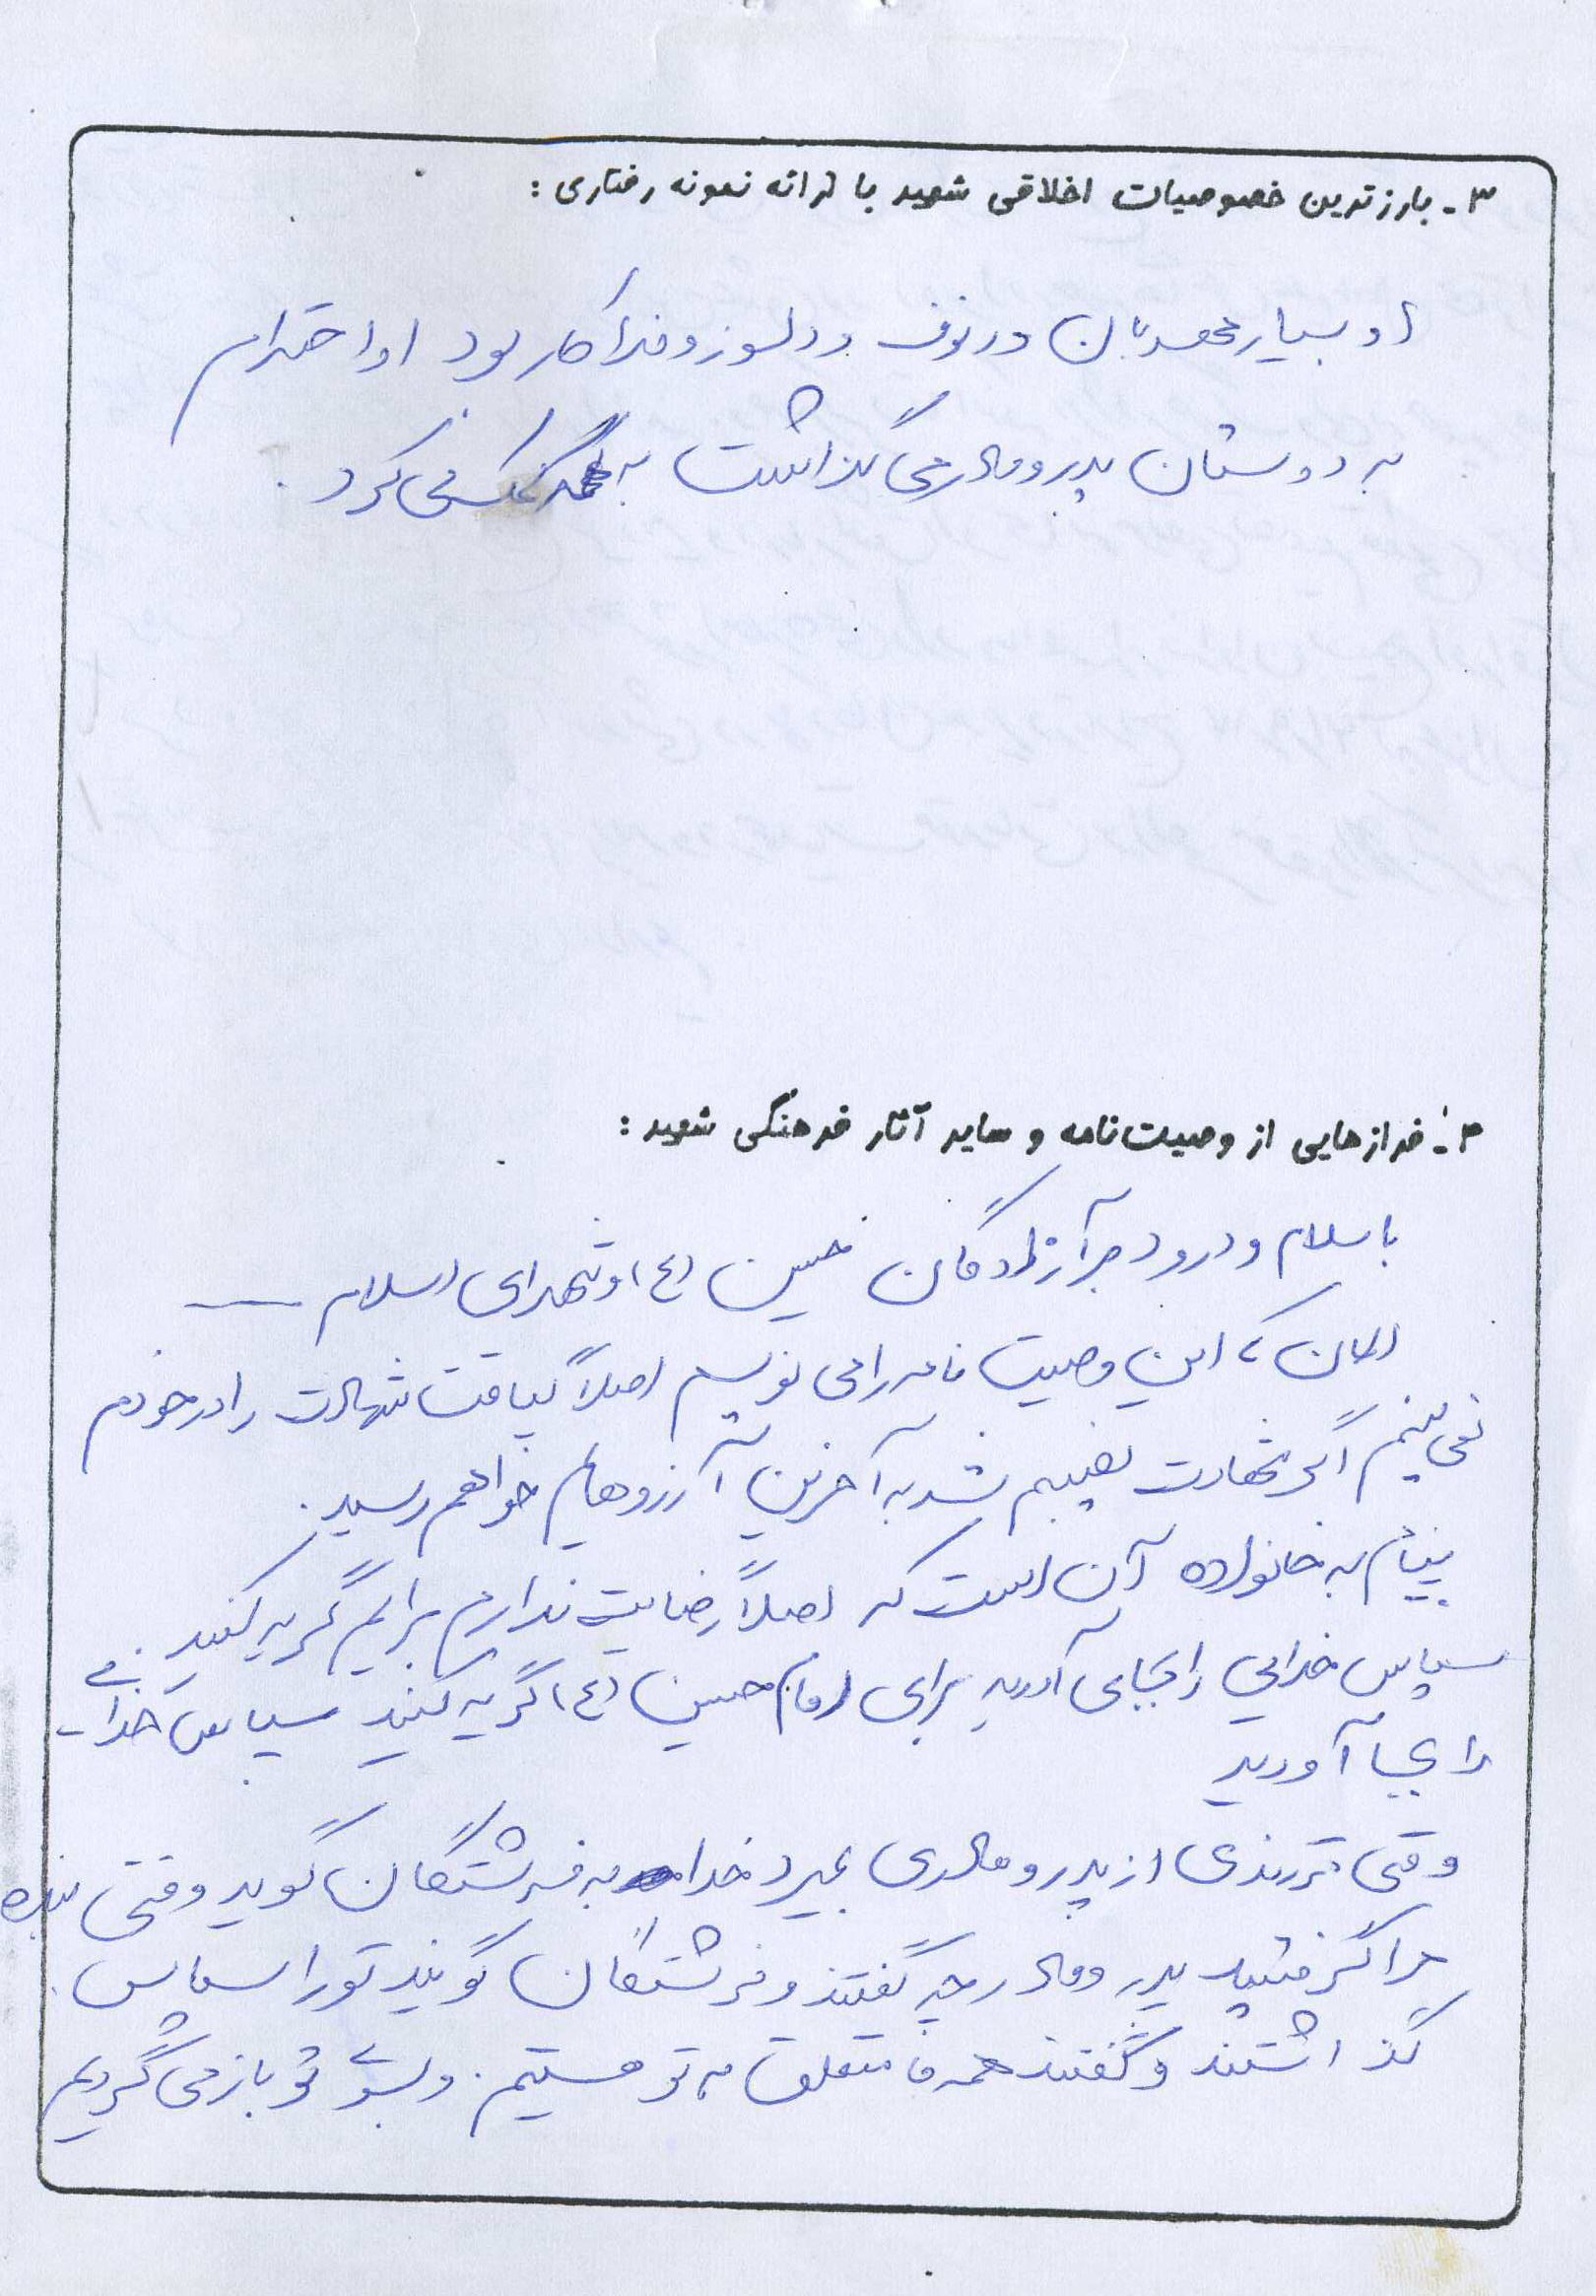 ۳- بارزترین خصوصیات اخلاقی شهید با ارائه نمونه رفتاری :
او بسیار مهربان و رئوف و دلسوز و فداکار بود او احترام
به دوستان پدر و مادر می گذاشت به همه کمک می کرد .
۴- فرازهایی از وصیت‌نامه و سایر آثار فرهنگی شهید :
با سلام و درود بر آزادگان حسین (ع) و شهدای اسلام
الان که این وصیت نامه را می نویسم اصلاً لیاقت شهادت را در خودم
نمی بینم اگر شهادت نصیبم شد به آخرین آرزوهایم خواهم رسید .
پیام به خانواده آن است که اصلاً رضایت ندارم برایم گریه کنید .
سپاس خدایی را بجای آورید برای امام حسین (ع) گریه کنید سپاس خدایی
را بجا آورید
وقتی فرزندی از پدر و مادری بمیرد خدا به فرشتگان گوید وقتی بنده
مرا گرفتید پدر و مادر چه گفتند و فرشتگان گویند تو را سپاس
گذاشتند و گفتند همه ما متعلق به تو هستیم . و بسوی تو باز می گردیم